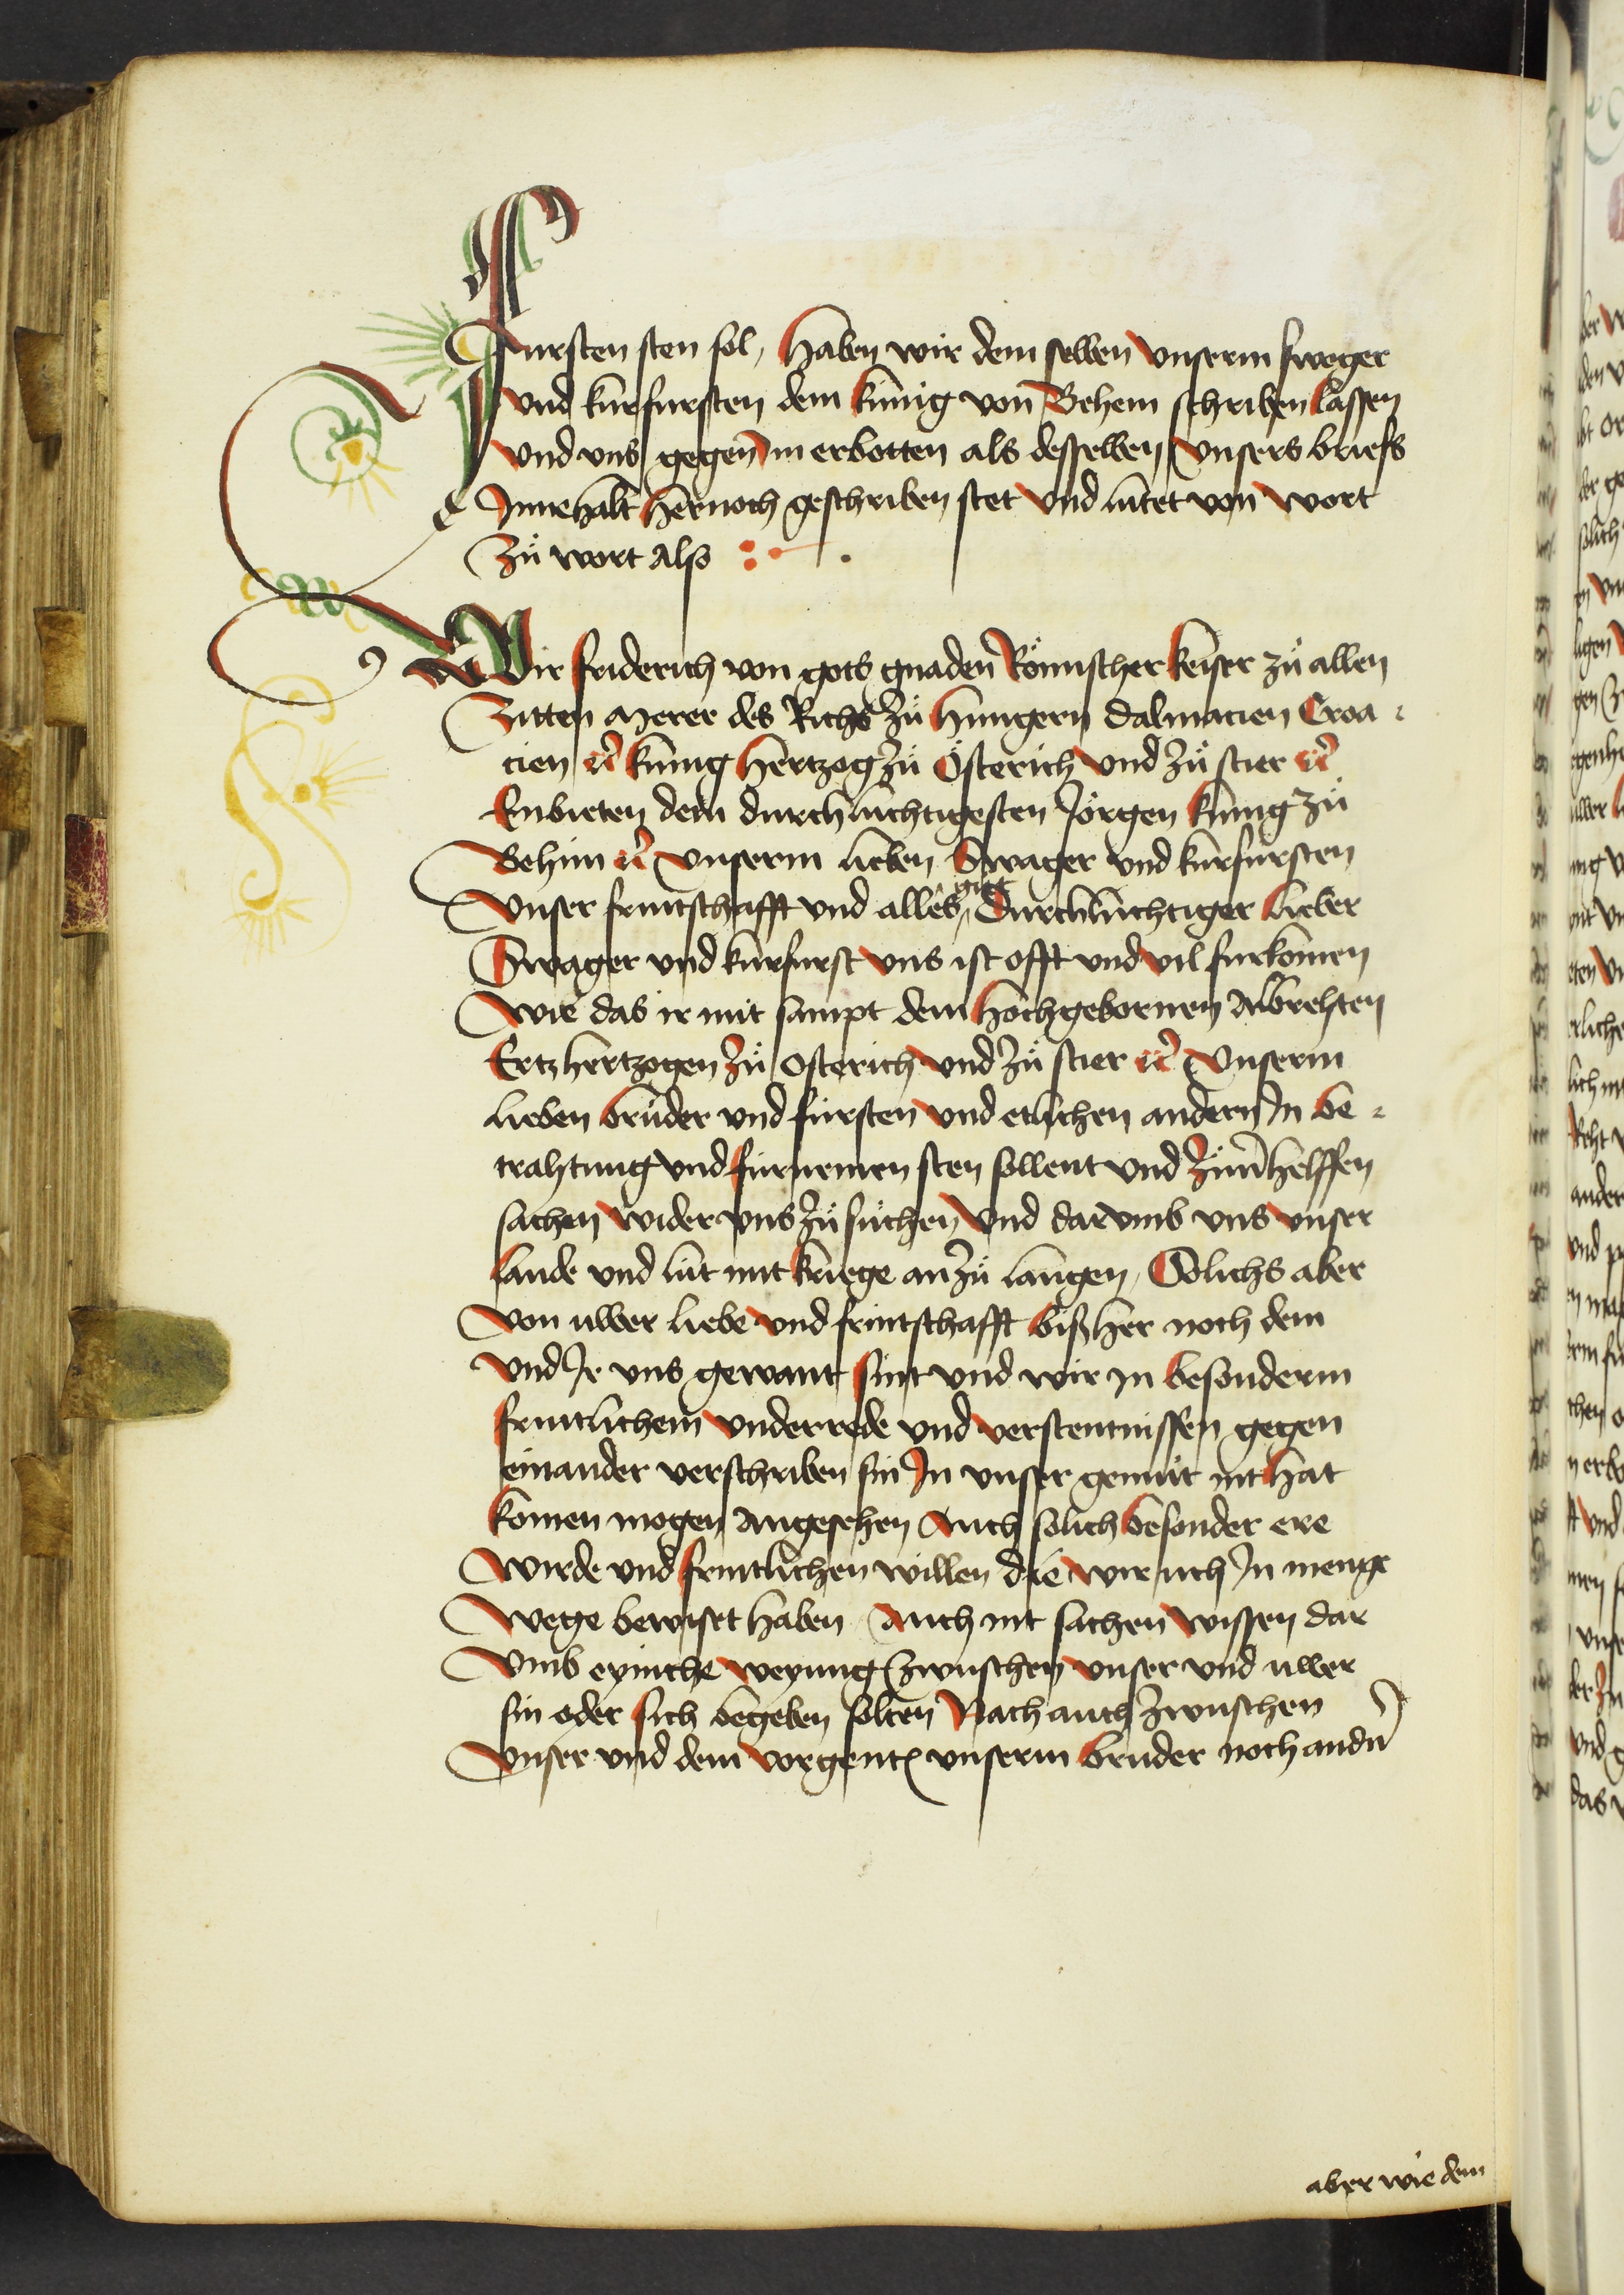 Fursten sten sol, Haben wir dem selben vnserm sweger
vnd kurfursten dem kúnig von Behem schriben lassen
vnd vns gegen im erbotten als desselben vnsers briefs
Innehalt hernoch geschriben stet vnd lutet von wort
Zů wort Also :
Wir friderich von gots gnaden Römischer keiser zů allen
Zitten Merer des Richs zů hungern dalmacien Croa
cien etc kúnig hertzog zů Österich vnd zů stier etc
Enbieten dem durchlúchtigesten Jörgen kúnig zů
Behim etc vnserm lieben Swager vnd kurfursten
vnser fruntschafft vnd alles gút, Durchlúchtiger lieber
Swager vnd kurfurst vns ist offt vnd vil furkomen
wie das ir mit sampt dem hochgebornen Albrehten
Ertzhertzogen zů Osterich vnd zů stier etc vnserm
lieben brůder vnd fúrsten vnd etlichen andern In be
trahtung vnd fúrnemen sten sollent vnd zum helffen
sachen wider vns zů sůchen vnd darvmb vns vnser
lande vnd lút mit kriege anzů langen, Solichs aber
von uwer liebe vnd frintschafft bißher noch dem
vnd Ir vns gewant sint vnd wir in besonderm
fruntlichem vnderrede vnd verstentnissen gegen
einander verschriben sin In vnser gemút nit hat
komen mogen Angesehen Auch solich besonder ere
wirde vnd fruntlichen willen die wir uch In menge
wege bewiset haben Auch nit sachen wissen dar
vmb eyniche weyung zwuschen vnser vnd uwer
sin oder sich begeben solten Nach auch zwuschen
vnser vnd dem vorgent vnserm bruder noch andn
aber wie dem